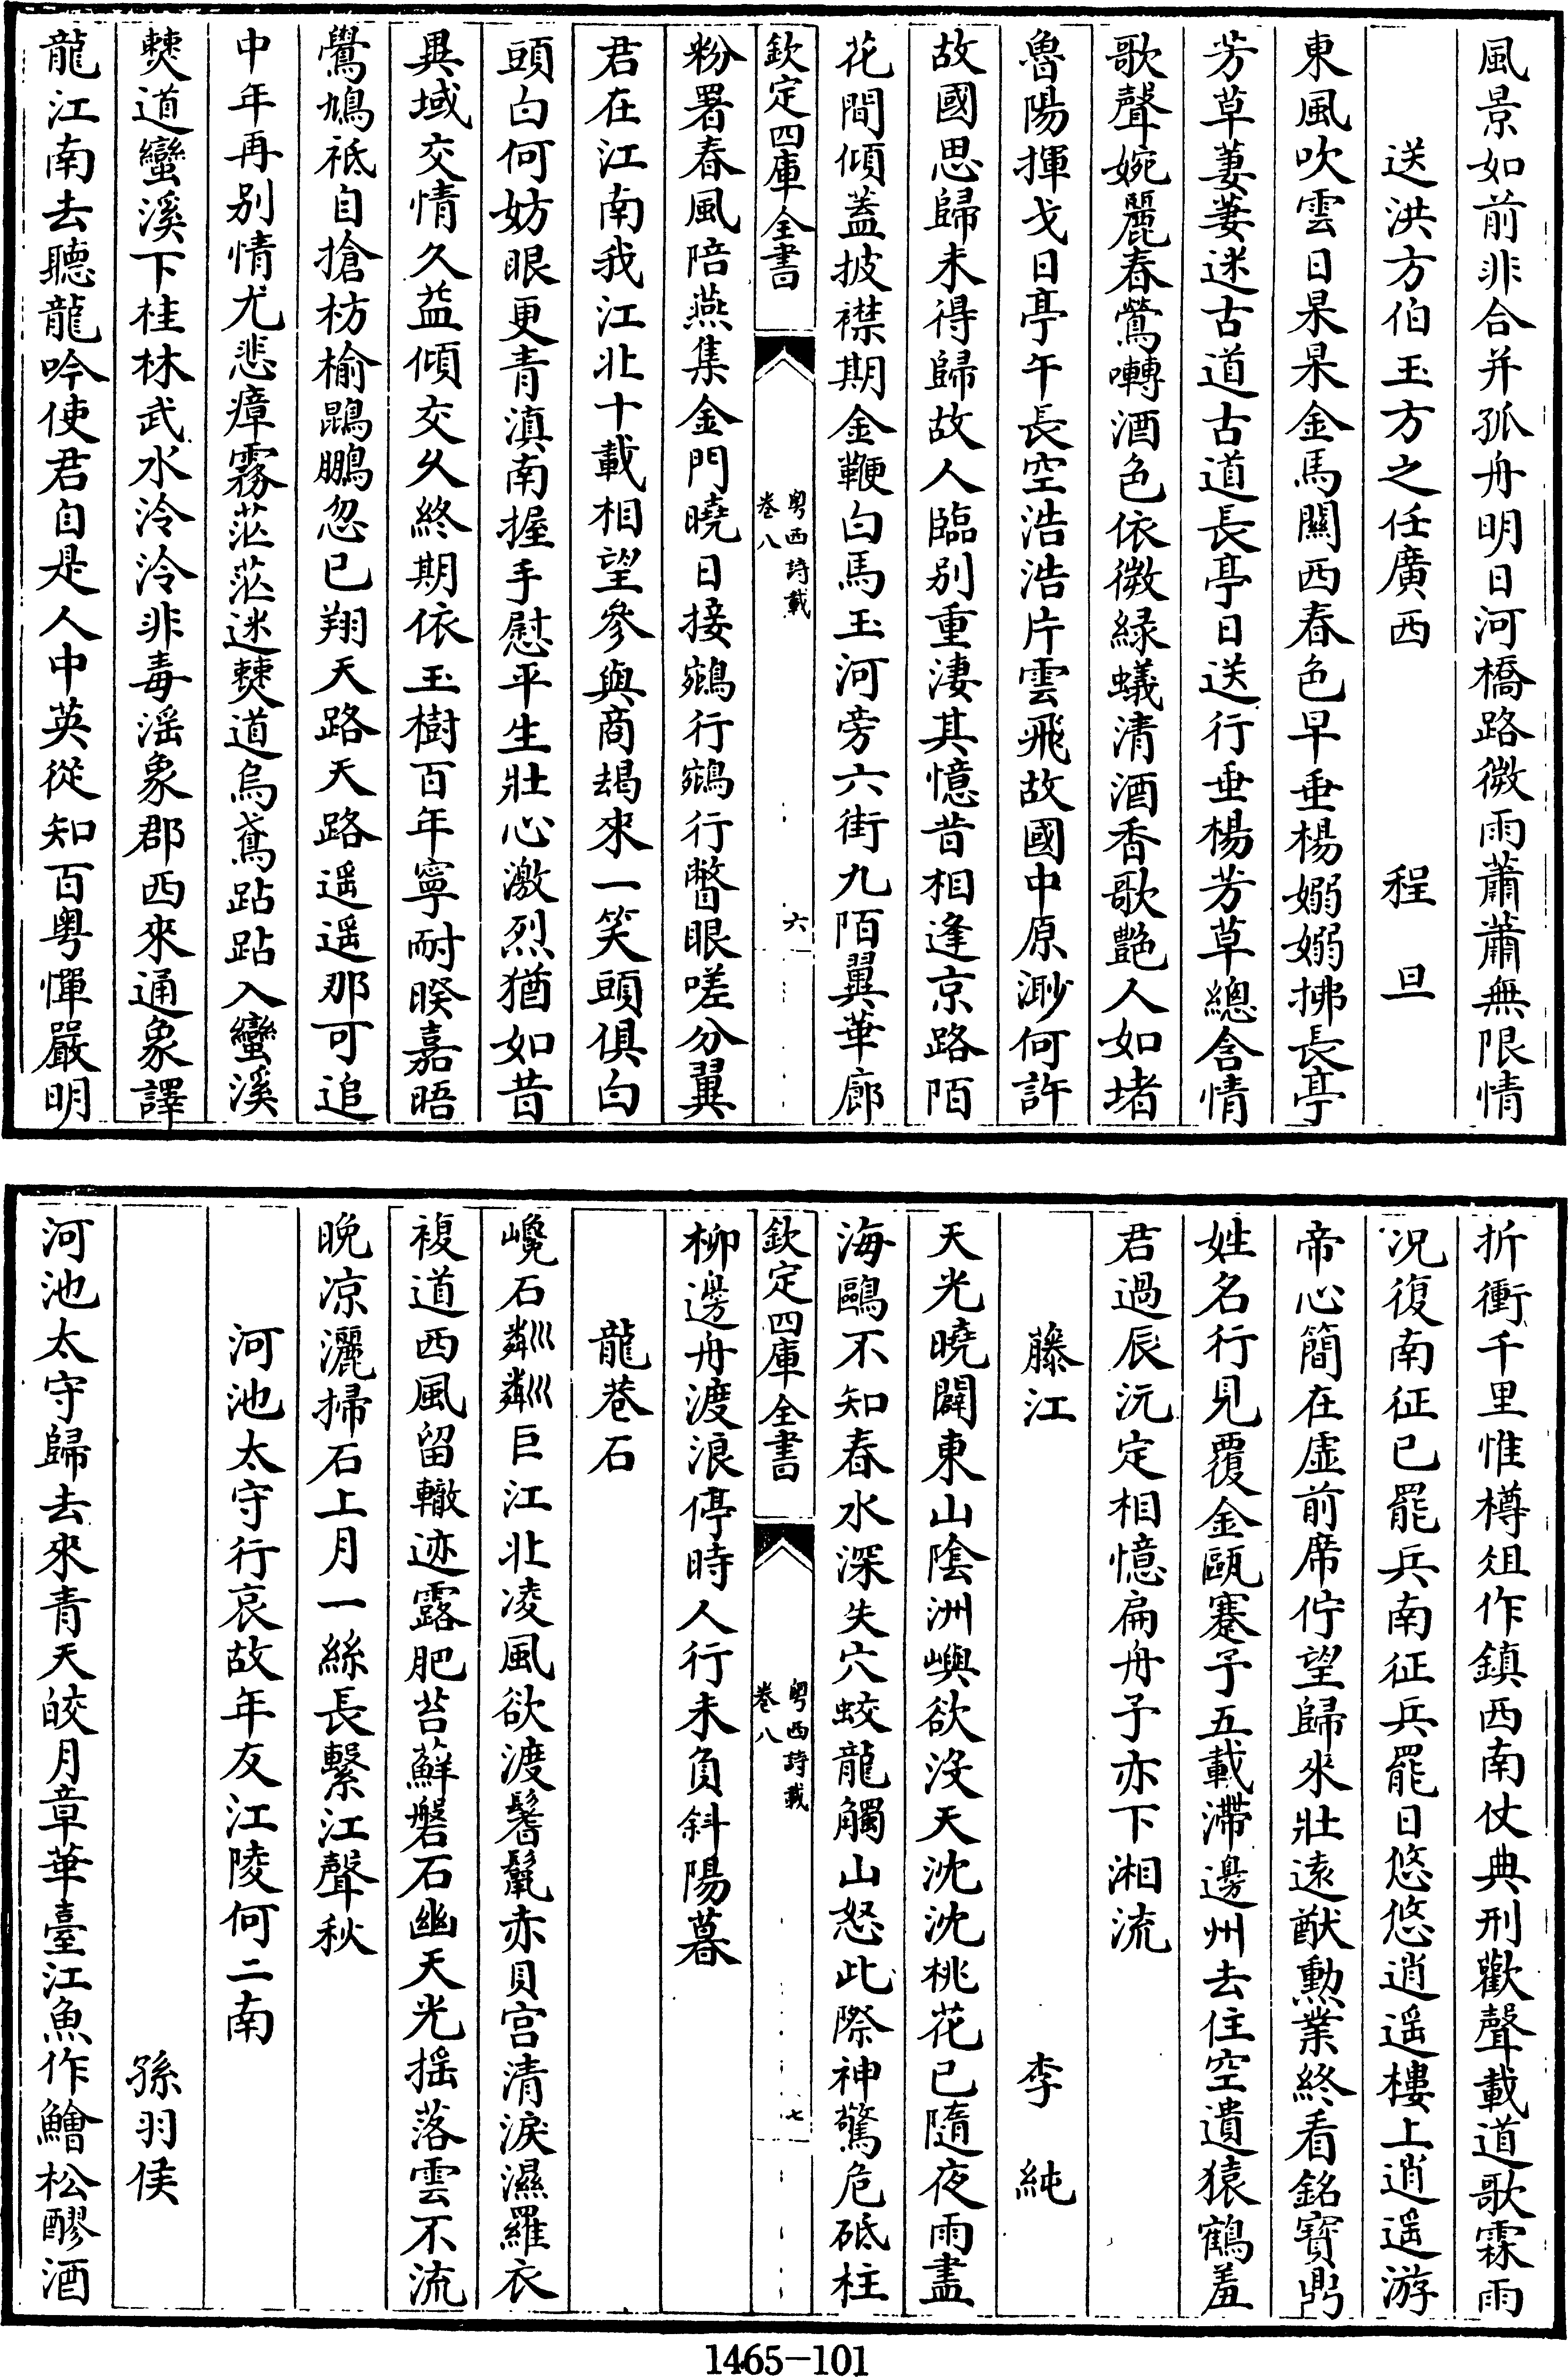 風景如前非合并孤舟明日河橋路微雨蕭蕭無限情
送洪方伯玉方之任廣西　程旦
東風吹雲日杲杲金馬關西春色早垂楊嫋嫋拂長亭
芳草萋萋迷古道古道長亭日送行垂楊芳草總含情
歌聲婉麗春鶯囀酒色依微緑蟻清酒香歌艶人如堵
魯陽揮戈日亭午長空浩浩片雲飛故國中原渺何許
故國思歸未得歸故人臨别重淒其憶昔相逢京路陌
花間傾蓋披襟期金鞭白馬玉河旁六街九陌翼華廊
欽定四庫全書
粤西詩載
卷八
六
粉署春風陪燕集金門曉日接鵷行鵷行瞥眼嗟分翼
君在江南我江北十載相望參與商朅來一笑頭俱白
頭白何妨眼更青滇南握手慰平生壯心激烈猶如昔
異域交情久益傾交久終期依玉樹百年寧耐暌嘉晤
鷽鳩祗自搶枋榆鵾鵬忽已翔天路天路遥遥那可追
中年再别情尤悲瘴霧茫茫迷僰道烏鳶跕跕入蠻溪
僰道蠻溪下桂林武水泠泠非毒滛象郡西來通象譯
龍江南去聽龍吟使君自是人中英從知百粤憚嚴明
折衝千里惟樽俎作鎮西南仗典刑歡聲載道歌霖雨
况復南征已罷兵南征兵罷日悠悠逍遥樓上逍遥游
帝心簡在虚前席佇望歸來壯遠猷勲業終看銘寳鼎
姓名行見覆金甌蹇予五載滯邊州去住空遺猿鶴羞
君過辰沅定相憶扁舟予亦下湘流
藤江　李純
天光曉闢東山陰洲嶼欲沒天沈沈桃花已隨夜雨盡
海鷗不知春水深失穴蛟龍觸山怒此際神驚危砥柱
欽定四庫全書
粤西詩載
卷八
七
柳邊舟渡浪停時人行未負斜陽暮
龍巷石
巉石粼粼巨江北凌風欲渡鬐鬣赤貝宫清淚濕羅衣
複道西風留轍迹露肥苔蘚磐石幽天光摇落雲不流
晚凉灑掃石上月一絲長繫江聲秋
河池太守行哀故年友江陵何二南
孫羽侯
河池太守歸去來青天皎月章華臺江魚作鱠松醪酒
1465-101